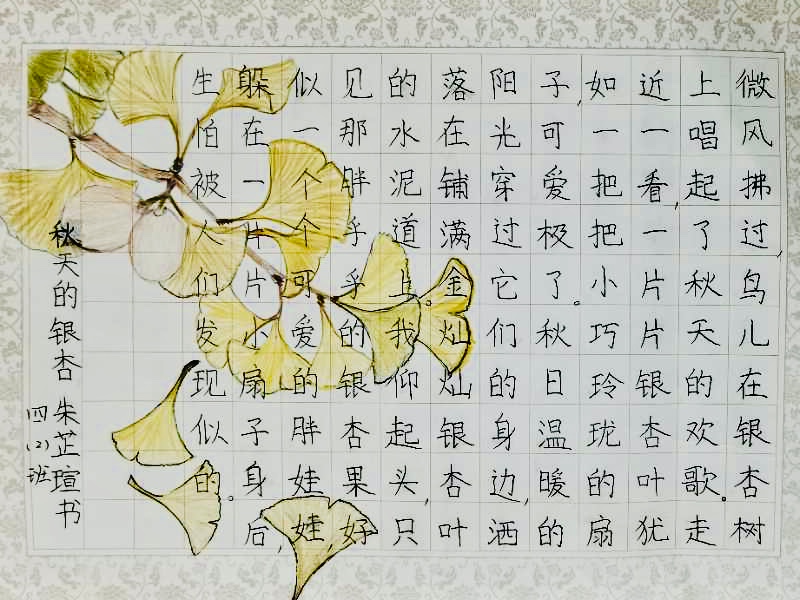 微风拂过,鸟儿在银杏树
上唱起了秋天的欢歌。走
近一看,一片片银杏叶犹
如一把把小巧玲珑的扇
子,可爱极了。秋日温暖的
阳光穿过它们的身边,洒
落在铺满金灿灿银杏叶
的水泥道上。我仰起头,只
见那胖乎乎的银杏果好
似一个个可爱的胖娃娃,
躲在一片片小扇子身后,
生怕被人们发现似的。
秋天的银杏 朱芷瑄书
四(2)班